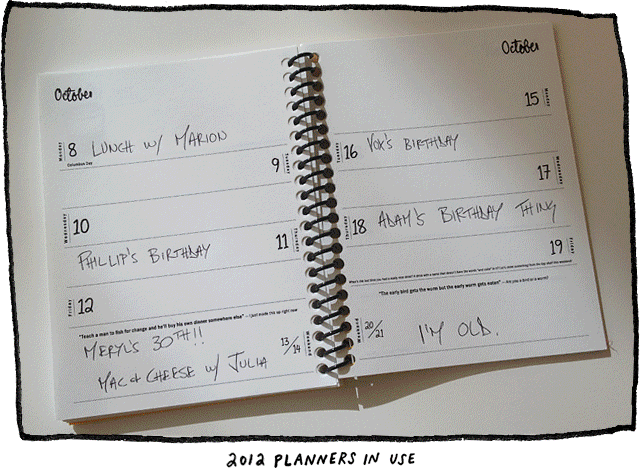 October
Monday
8 LUNCH W/ MARION
Columbus Day
Tuesday
9
Wednesday
10
PHILLIP'S BIRTHDAY
Thursday
11
Friday
12
"Teach a man to fish for change and he'll buy his own dinner somewhere else" – I just made this up right now
MERYL'S 30TH!!
13/14
Weekend
MAC & CHEESE W/ JULIA
October
Monday
15
Tuesday
16 VOX'S BIRTHDAY
Wednesday
17
Thursday
18 ADAM'S BIRTHDAY THING
Friday
19
"The early bird gets the worm but the early worm gets eaten" – Are you a bird or a worm?
Weekend
20/21
I'M OLD.
2012 PLANNERS IN USE